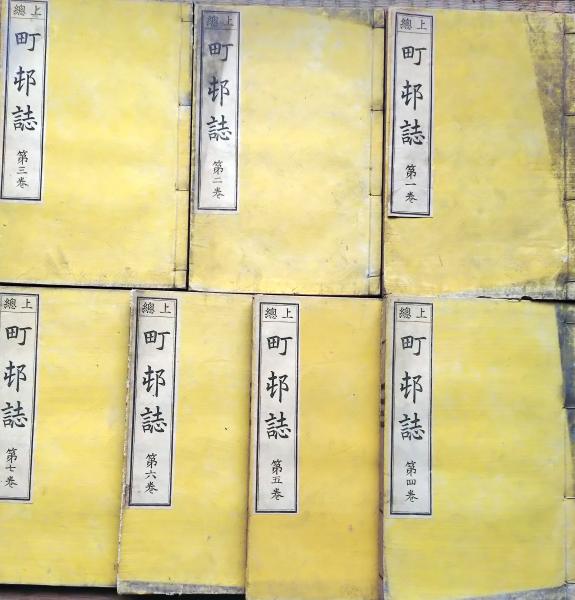 上總
町邨誌
第一巻
上總
町邨誌
第二巻
上總
町邨誌
第三巻
上總
町邨誌
第四巻
上總
町邨誌
第五巻
上總
町邨誌
第六巻
上總
町邨誌
第七巻